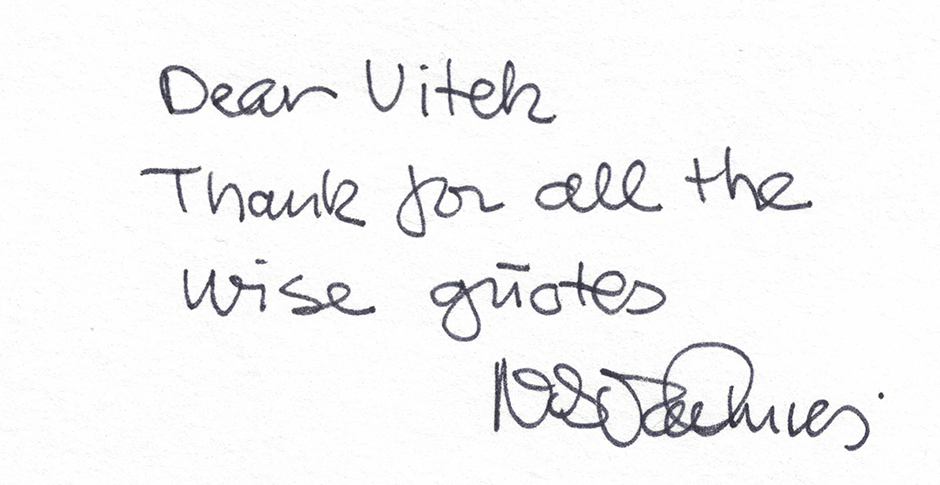 Dear Vitek
Thank for all the
wise quotes